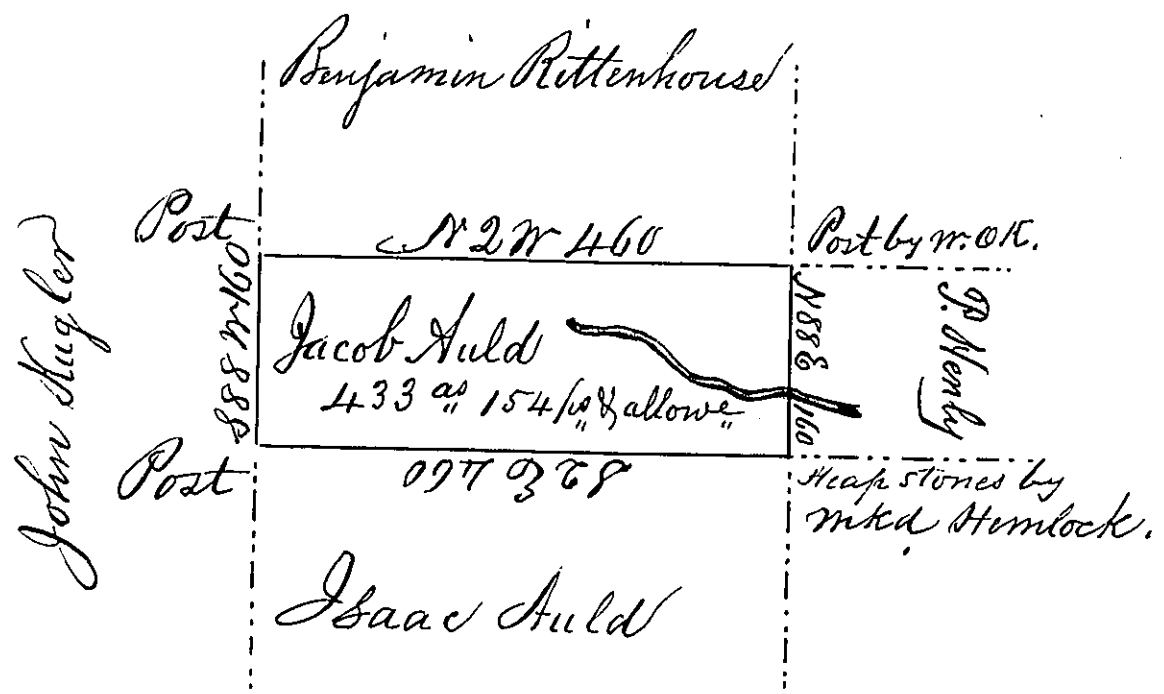 Benjamin Rittenhouse
Post
N 2 W 460
Post by W. OK.
John Kugler
S 88 W 160
Jacob Auld
433 as 154 ps & allowe
N 88 E 160
P. Henly
Post
S 2 E 460
Heap stones by
mkd Hemlock.
Isaac Auld